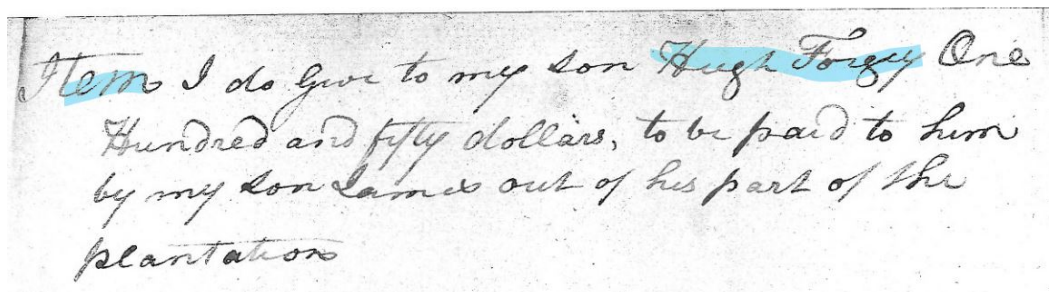 Item I do give to my son Hugh Forgey One
Hundred and fifty dollars, to be paid to him
by my son James out of his part of the
plantation